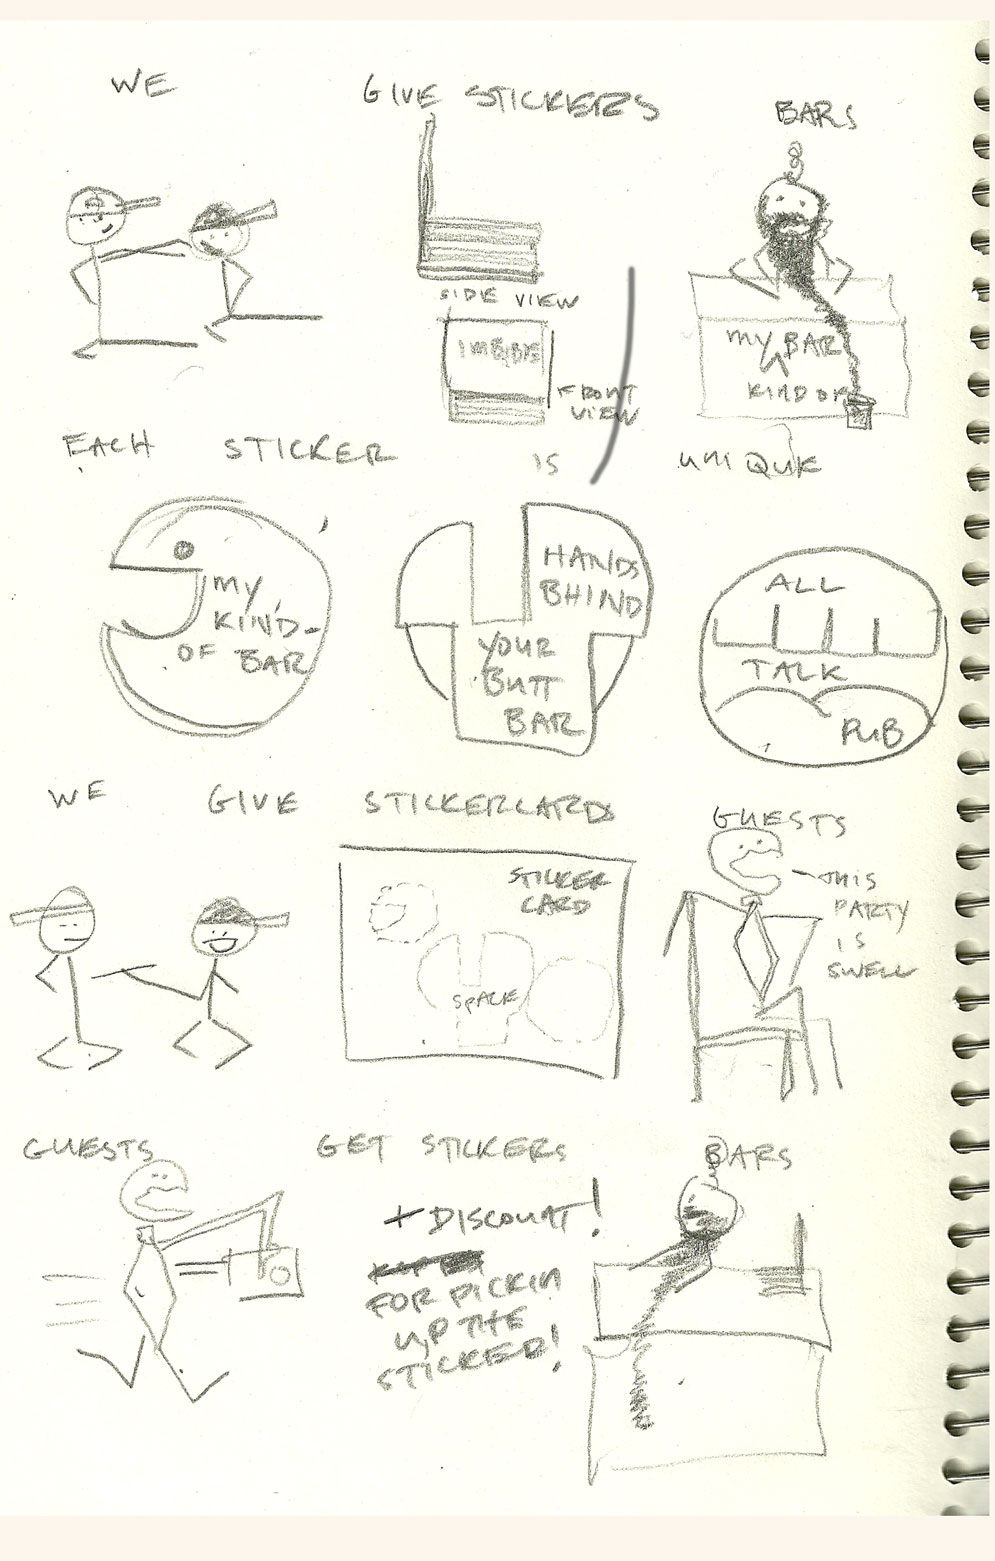 WE GIVE STICKERS BARS
SIDE VIEW
FRONT
VIEW
MY BAR
KIND OF
EACH STICKER IS UNIQUE
MY
KIND-
OF BAR
HANDS
BHIND
YOUR
BUTT
BAR
ALL
TALK
PUB
WE GIVE STICKERCARDS GUESTS
STICKER
CARD
SPACE
THIS
PARTY
IS
SWELL
GUESTS GET STICKERS BARS
+ DISCOUNT!
FOR PICKIN
UP THE
STICKER!